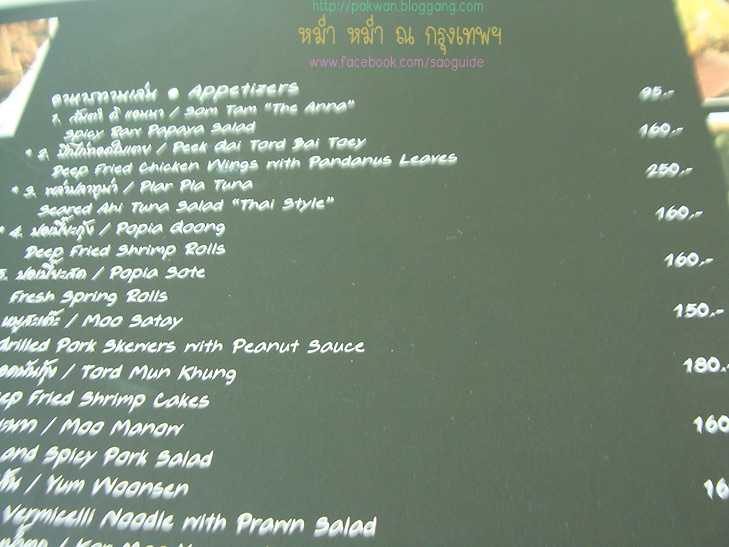 http://pakwan.bloggang.com
หม่ำ หม่ำ ณ กรุงเทพฯ
www.facebook.com/saoguide
อาหารทานเล่น • Appetizers
1. ส้มตำ ดิ แอนนา / Som Tam "The Anna" 95.-
Spicy Raw Papaya Salad
* 2. ปีกไก่ทอดใบเตย / Peek Gai Tord Bai Toey 160.-
Deep Fried Chicken Wings with Pandanus Leaves
* 3. พล่าปลาทูน่า / Plar Pla Tuna 250.-
Seared Ahi Tuna Salad "Thai Style"
* 4. ปอเปี๊ยะกุ้ง / Popia Goong 160.-
Deep Fried Shrimp Rolls
5. ปอเปี๊ยะสด / Popia Sote 160.-
Fresh Spring Rolls
หมูสะเต๊ะ / Moo Satay 150.-
Grilled Pork Skewers with Peanut Sauce
ทอดมันกุ้ง / Tord Mun Khung 180.-
Deep Fried Shrimp Cakes
/ Moo Manow 160
and Spicy Pork Salad
/ Yum Woonsen 16
Vermicelli Noodle with Prawn Salad